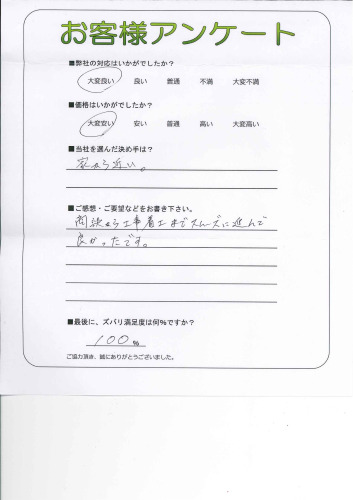 お客様アンケート
■弊社の対応はいかがでしたか?
大変良い 良い 普通 不満 大変不満
■価格はいかがでしたか?
大変安い 安い 普通 高い 大変高い
■当社を選んだ決め手は?
家から近い。
■ご感想・ご要望などをお書き下さい。
商談から工事着工までスムーズに進んで
良かったです。
■最後に、ズバリ満足度は何%ですか?
100%
ご協力頂き、誠にありがとうございました。